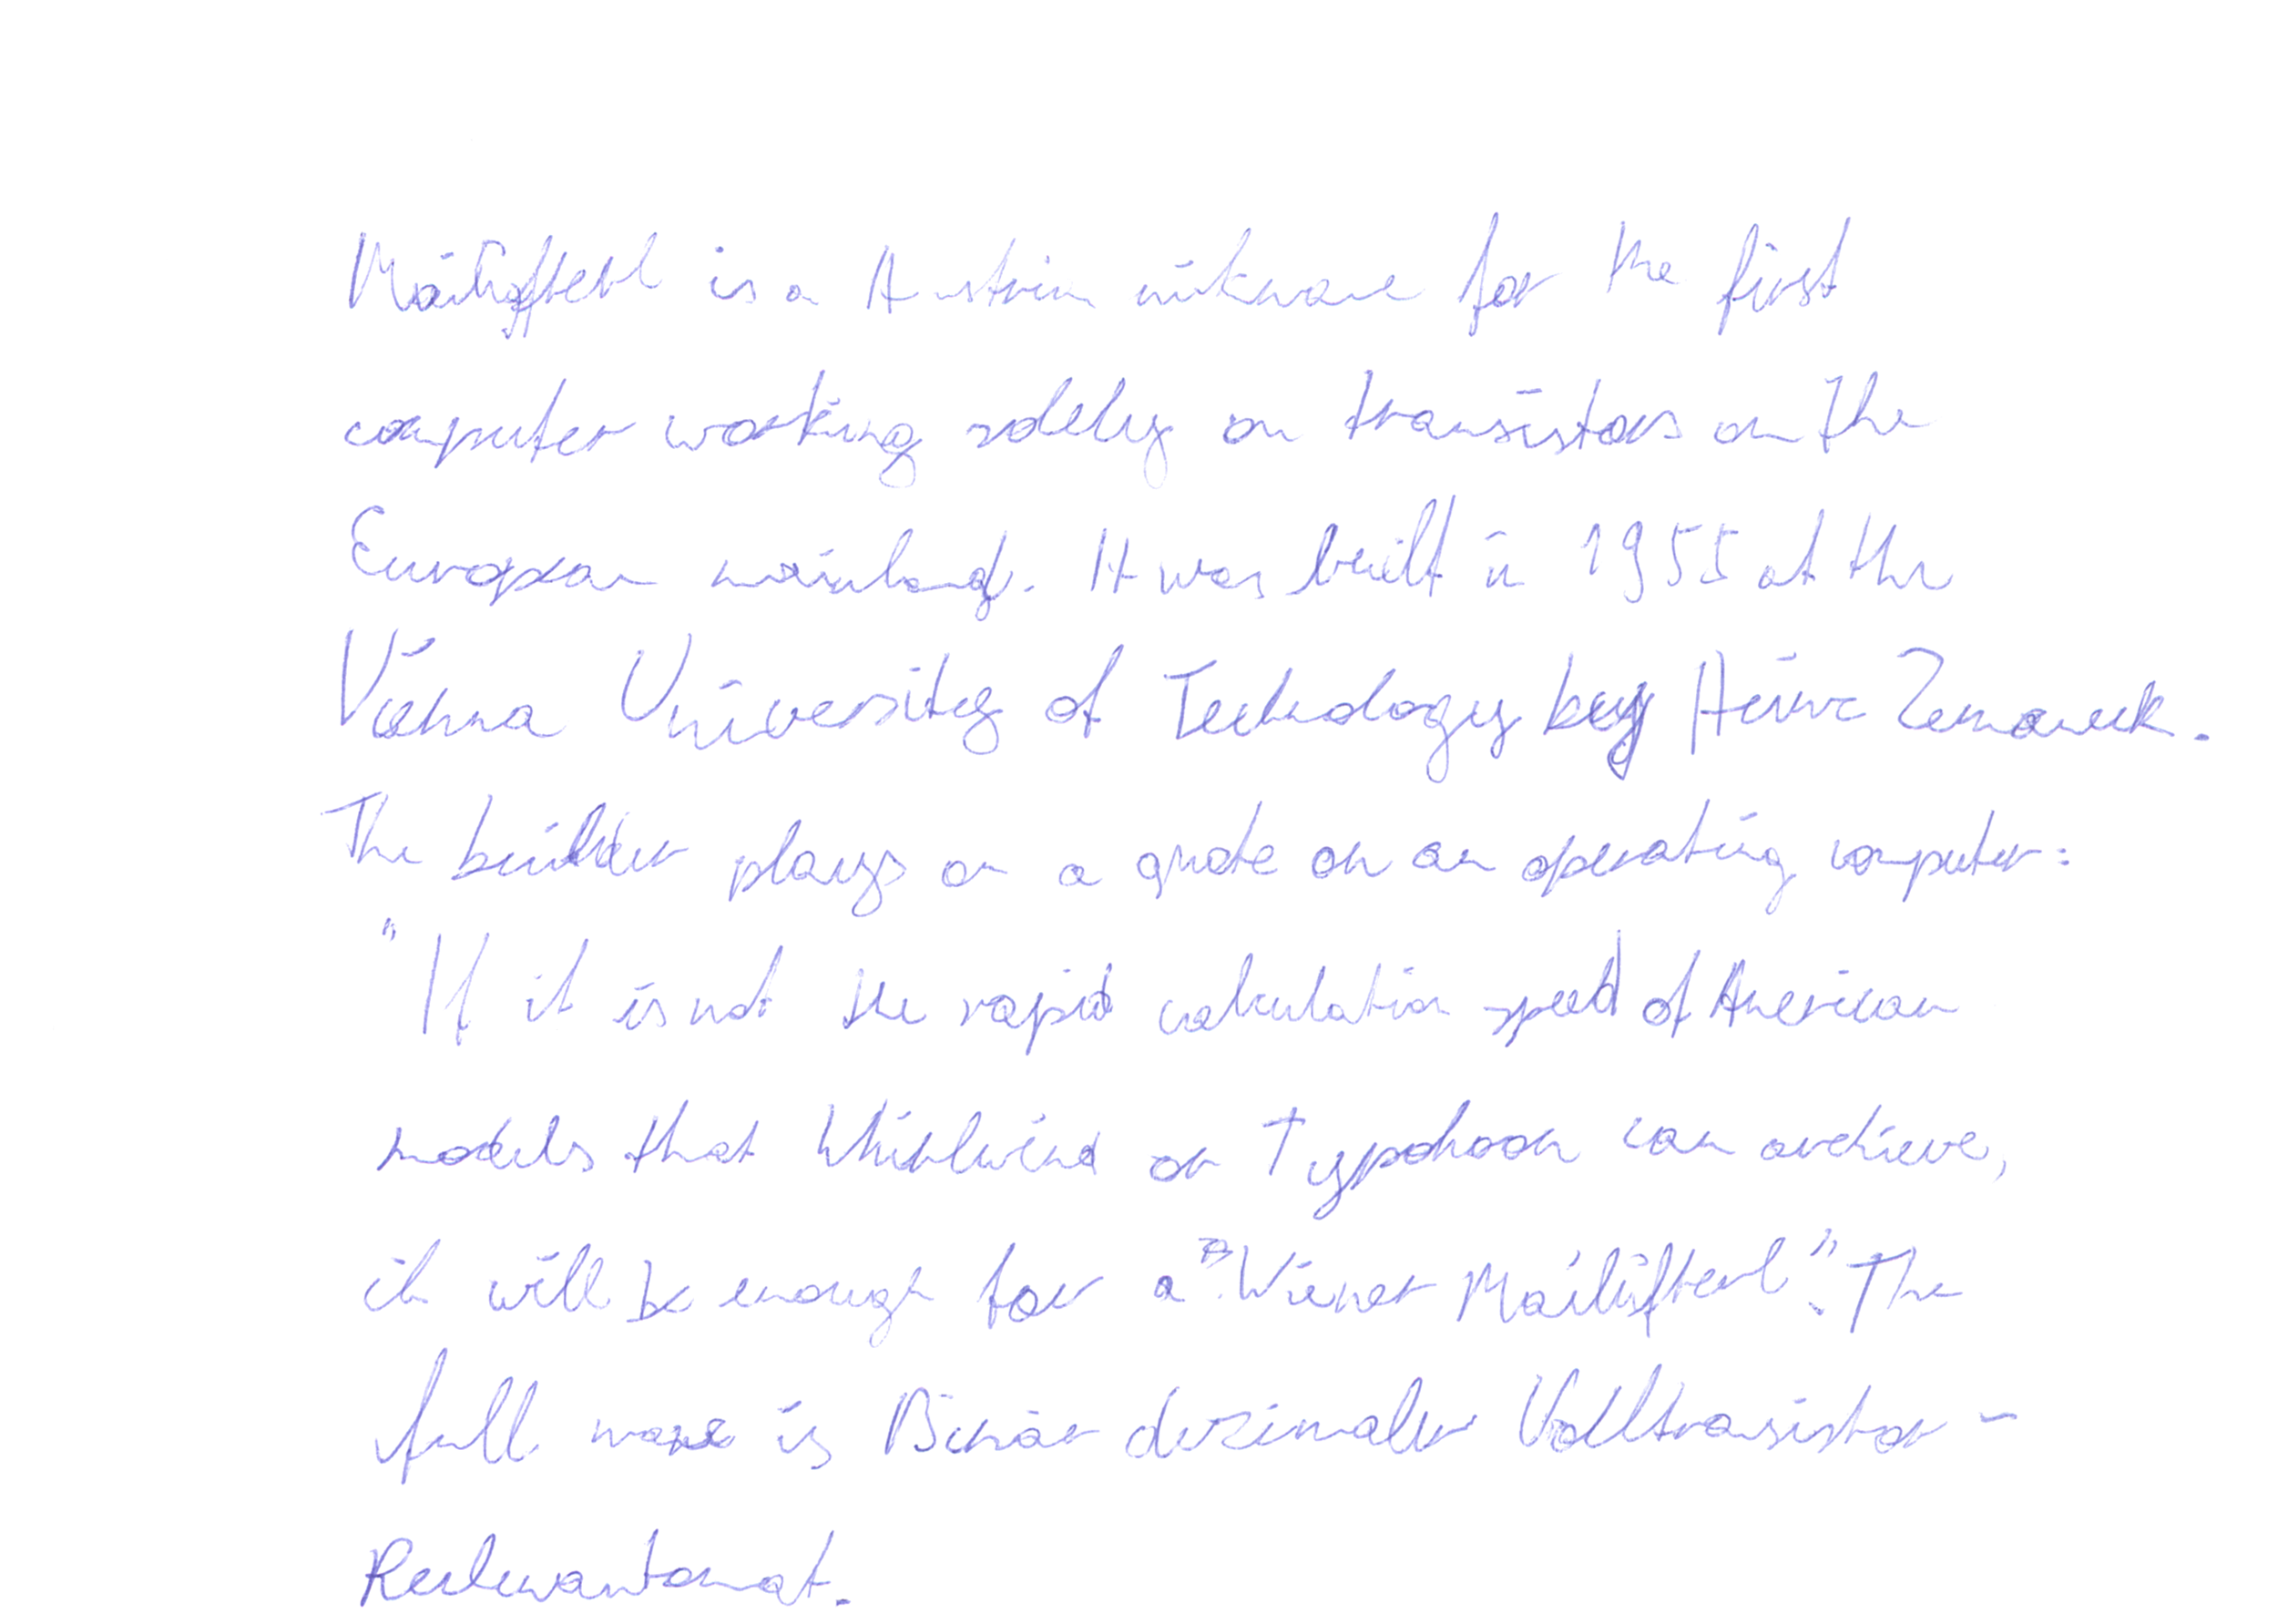 Mailüfterl is a Austrian nickname for the first
computer working solely on transistors on the
European mainland. It was built in 1955 at the
Vienna University of Technology by Heinz Zemanek.
The builder plays on a quote on an operating computer:
"If it is not the rapid calculation speed of American
models that Whirlwind or Typhoon can archieve,
it will be enough for a "Wiener Mailüfterl". The
full name is Binär dezimaler Volltransistor-
Rechenautomat.